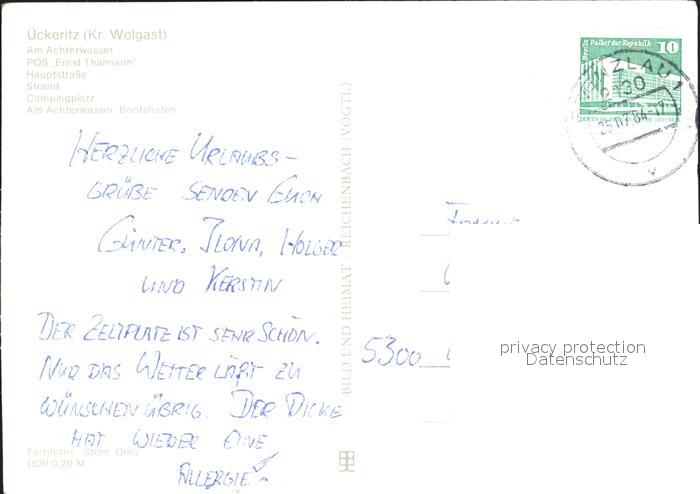 Ückeritz (Kr. Wolgast)
Am Achterwasser
POS „Ernst Thälmann"
Hauptstraße
Strand
Campingplatz
Am Achterwasser, Bootshafen
HERZLICHE URLAUBS-
GRÜßE SENDEN EUCH
GÜNTER, ILONA, HOLGER
UND KERSTIN
DER ZELTPLATZ IST SEHR SCHÖN.
NUR DAS WETTER LÄßT ZU
WÜNSCHEN ÜBRIG. DER DICKE
HAT WIEDER EINE
ALLERGIE!
Farbfotos: Stöhr, Greiz
DDR 0,20 M
BILD UND HEIMAT · REICHENBACH (VOGTL)
Berlin Palast der Republik 10
PRENZLAU 1
2130
25.07.84-17
5300
privacy protection
Datenschutz